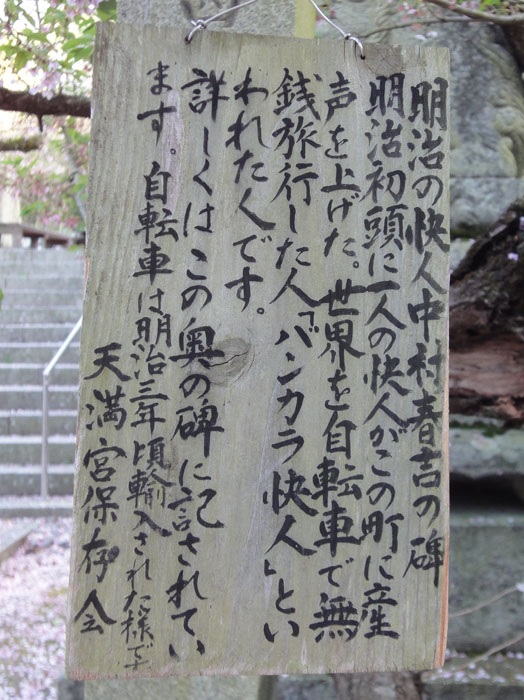 明治の快人中村春吉の碑
明治初頭に一人の快人がこの町に産
声を上げた。世界を自転車で無
銭旅行した人「バンカラ快人」とい
われた人です。
詳しくはこの奥の碑に記されてい
ます。自転車は明治三年頃輸入された様です
天満宮保存会